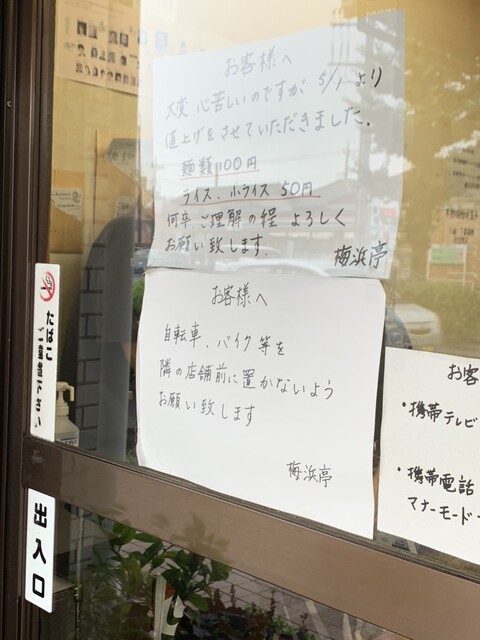 お客様へ
大変 心苦しいのですが 5/1より
値上げをさせていただきました。
麺類100円
ライス、小ライス 50円
何卒、ご理解の程 よろしく
お願い致します。
梅浜亭
お客様へ
自転車、バイク等を
隣の店舗前に置かないよう
お願い致します
梅浜亭
お客
・携帯テレビ
・携帯電話
マナーモード
たばこ
ご遠慮下さい
出入口